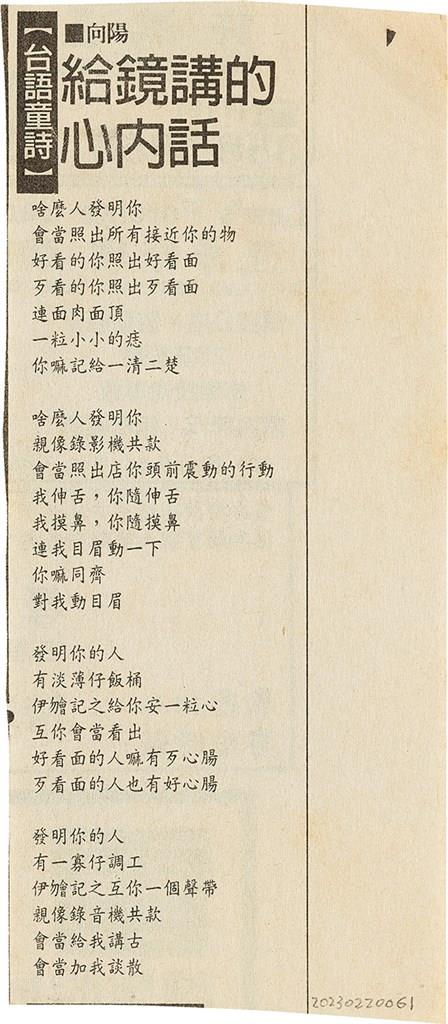 【台語童詩】
■向陽
給鏡講的
心內話
啥麼人發明你
會當照出所有接近你的物
好看的你照出好看面
歹看的你照出歹看面
連面肉面頂
一粒小小的痣
你嘛記給一清二楚
啥麼人發明你
親像錄影機共款
會當照出店你頭前震動的行動
我伸舌，你隨伸舌
我摸鼻，你隨摸鼻
連我目眉動一下
你嘛同齊
對我動目眉
發明你的人
有淡薄仔飯桶
伊𣍐記之給你安一粒心
互你會當看出
好看面的人嘛有歹心腸
歹看面的人也有好心腸
發明你的人
有一寡仔調工
伊𣍐記之互你一個聲帶
親像錄音機共款
會當給我講古
會當加我談散
20230220061